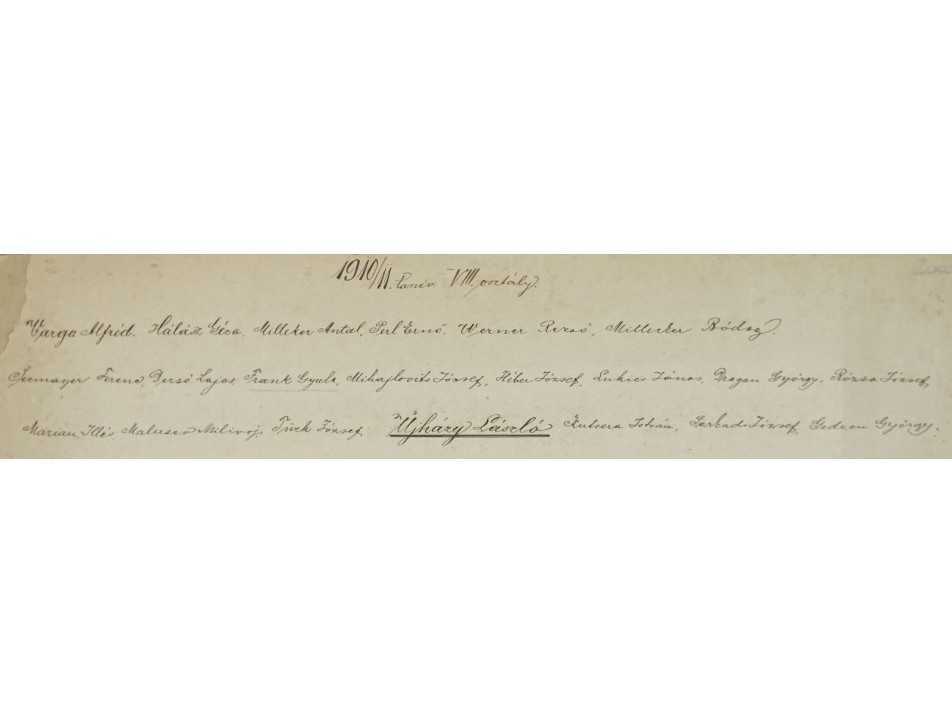 1910/11. tanév VIII. osztály.
Varga Alfréd. Halász Géza. Milleker Antal, Perl Ernő. Werner Rezső, Milleker Bódog.
Seemayer Ferenc, Dezső Lajos Frank Gyula, Mihajlovits József, Héber József, Lukic János, Dragan György. Rózsa József
Marian Illés Milivoj, Türk József Újházy László Kutsera István, József, Gedeon György.